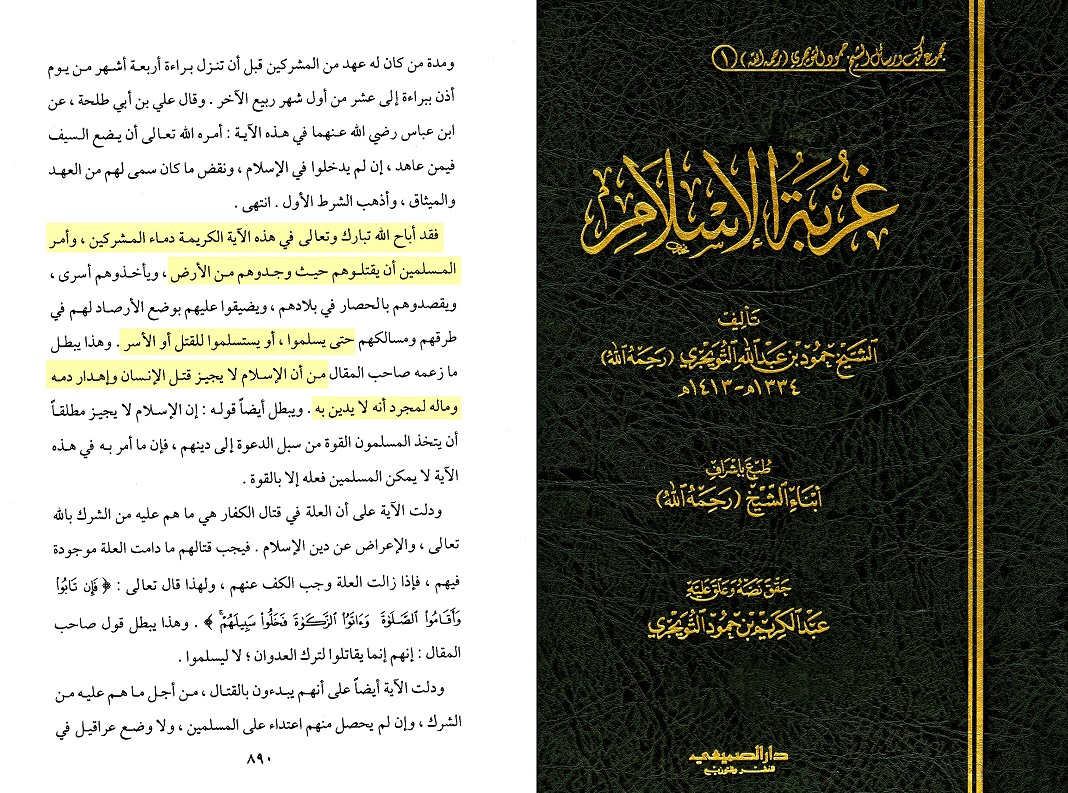 مجموع كتب ورسائل الشيخ حمود التويجري (رحمه الله) (١)
غُربَةُ الإِسْلَامِ
تأليف
الشيخ حمود بن عبد الله التويجري (رحمه الله)
١٣٣٤هـ-١٤١٣هـ
طُبع بإشراف
أبناء الشيخ (رحمه الله)
حقق نصه وعلق عليه
عبد الكريم بن حمود التويجري
دار الصميعي
للنشر والتوزيع
ومدة من كان له عهد من المشركين قبل أن تنزل براءة أربعة أشهر من يوم
أذن ببراءة إلى عشر من أول شهر ربيع الآخر . وقال علي بن أبي طلحة ، عن
ابن عباس رضي الله عنهما في هذه الآية : أمره الله تعالى أن يضع السيف
فيمن عاهد ، إن لم يدخلوا في الإسلام ، ونقض ما كان سمى لهم من العهد
والميثاق ، وأذهب الشرط الأول . انتهى .
فقد أباح الله تبارك وتعالى في هذه الآية الكريمة دماء المشركين ، وأمر
المسلمين أن يقتلوهم حيث وجدوهم من الأرض ، ويأخذوهم أسرى ،
ويقصدوهم بالحصار في بلادهم ، ويضيقوا عليهم بوضع الأرصاد لهم في
طرقهم ومسالكهم حتى يسلموا ، أو يستسلموا للقتل أو الأسر . وهذا يبطل
ما زعمه صاحب المقال من أن الإسلام لا يجيز قتل الإنسان وإهدار دمه
وماله لمجرد أنه لا يدين به . ويبطل أيضاً قوله : إن الإسلام لا يجيز مطلقاً
أن يتخذ المسلمون القوة من سبل الدعوة إلى دينهم ، فإن ما أمر به في هذه
الآية لا يمكن المسلمين فعله إلا بالقوة .
ودلت الآية على أن العلة في قتال الكفار هي ما هم عليه من الشرك بالله
تعالى ، والإعراض عن دين الإسلام . فيجب قتالهم ما دامت العلة موجودة
فيهم ، فإذا زالت العلة وجب الكف عنهم ، ولهذا قال تعالى : ﴿ فَإِن تَابُوا۟
وَأَقَامُوا۟ ٱلصَّلَوٰةَ وَءَاتَوُا۟ ٱلزَّكَوٰةَ فَخَلُّوا۟ سَبِيلَهُمْ ۚ ﴾ . وهذا يبطل قول صاحب
المقال : إنهم إنما يقاتلوا لترك العدوان ؛ لا ليسلموا .
ودلت الآية أيضاً على أنهم يبدءون بالقتال ، من أجل ما هم عليه من
الشرك ، وإن لم يحصل منهم اعتداء على المسلمين ، ولا وضع عراقيل في
٨٩٠